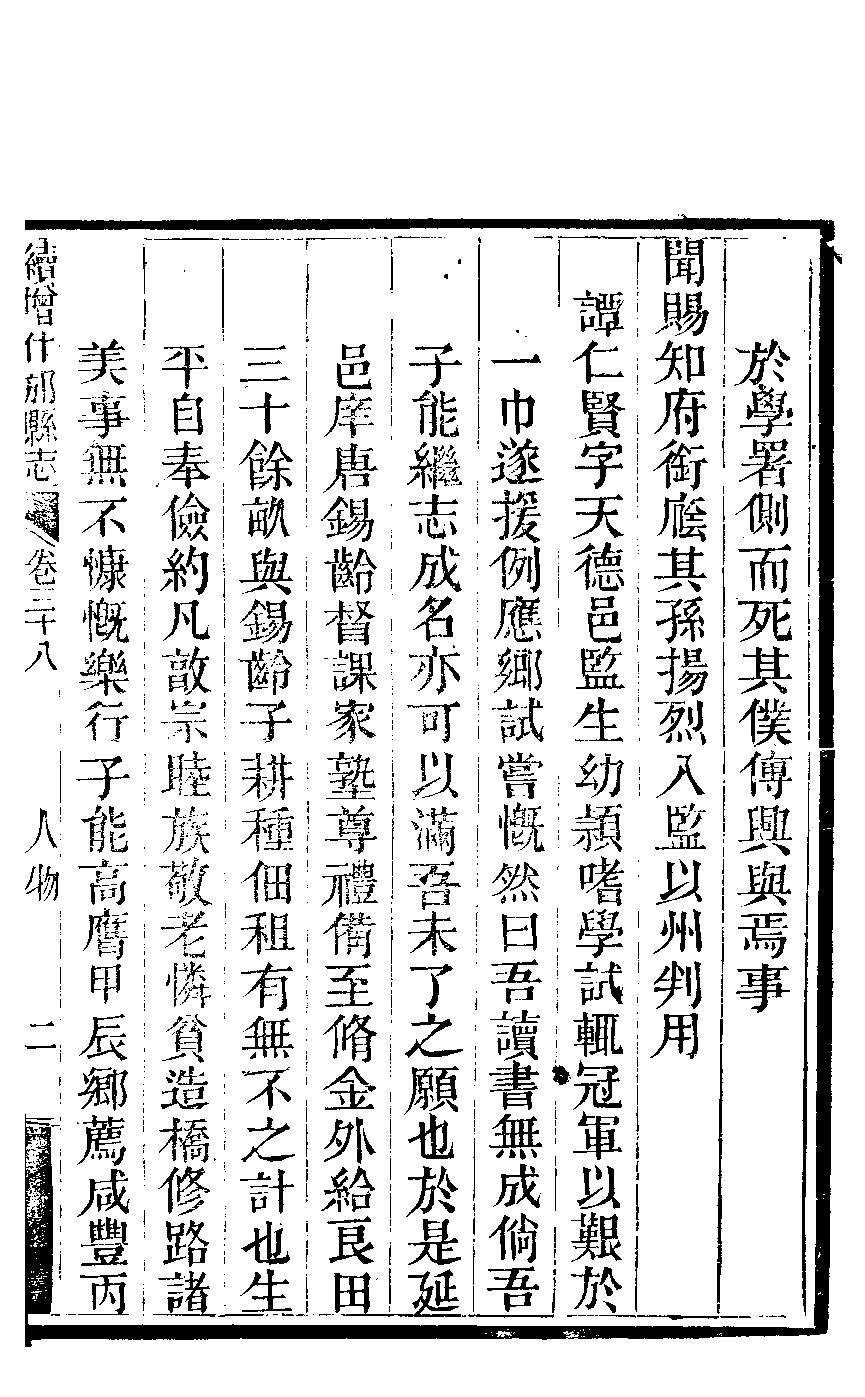 於學署側而死其僕傅興與焉事
聞賜知府銜廕其孫揚烈入監以州判用
譚仁賢字天德邑監生幼頴嗜學試輒冠軍以艱於
一巾遂援例應鄉試嘗慨然曰吾讀書無成倘吾
子能繼志成名亦可以滿吾未了之願也於是延
邑庠唐錫齡督課家塾尊禮備至脩金外給良田
三十餘畝與錫齡子耕種佃租有無不之計也生
平自奉儉約凡敦宗睦族敬老憐貧造橋修路諸
美事無不慷慨樂行子能高膺甲辰鄉薦咸豐丙
續增什邡縣志 卷三十八 人物 二